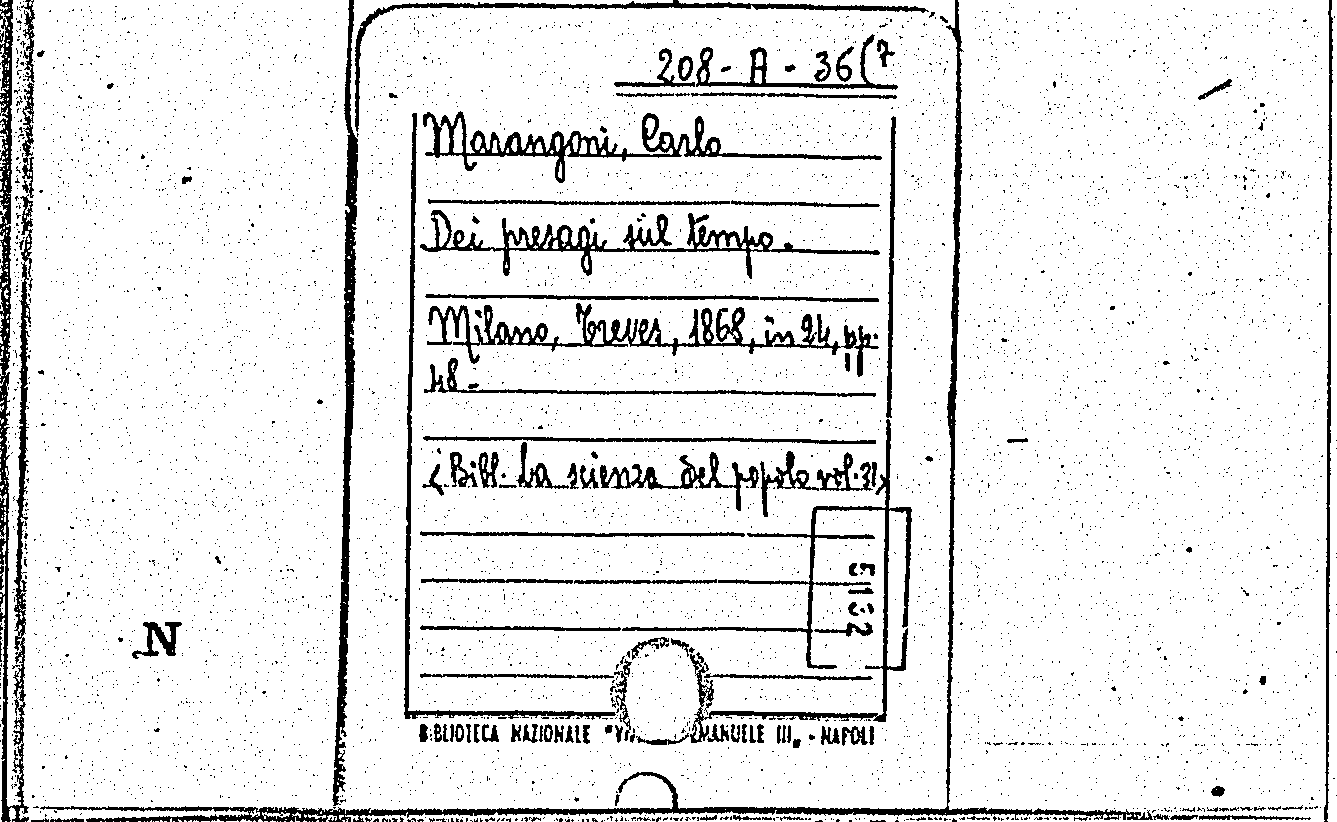 208 - A - 36(7
Marangoni, Carlo
Dei presagi sul tempo.
Milano, Treves, 1868, in 24, pp.
48 -
(Bibl. La scienza del popolo vol. 31)
5132
N
BIBLIOTECA NAZIONALE "VI EMANUELE III„ - NAPOLI